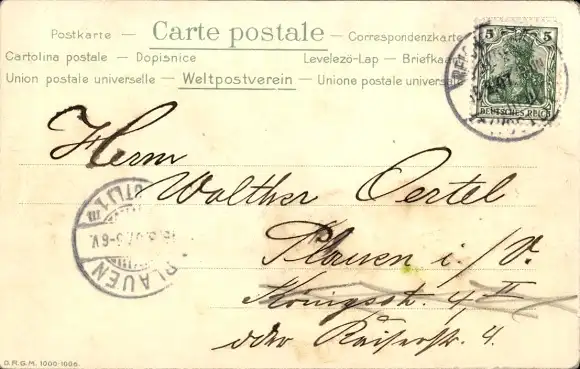 Postkarte — Carte postale — Correspondenzkarte
Cartolina postale — Dopisnice Levelezö-Lap — Briefkaart
Union postale universelle — Weltpostverein — Unione postale universale
5 5
DEUTSCHES REICH
Herrn
Walther Oertel
Plauen i./V.
Königsstr. 4 II
oder Kaiserstr. 4.
PLAUEN
(VOGTL) 1. m
D.R.G.M. 1000-1006.